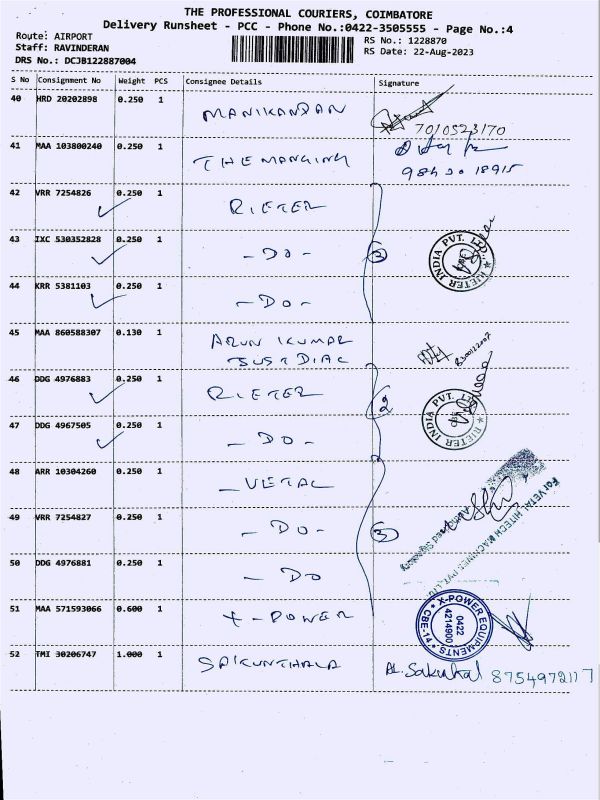 THE PROFESSIONAL COURIERS, COIMBATORE
Delivery Runsheet - PCC - Phone No.:0422-3505555 - Page No.:4
Route: AIRPORT
Staff: RAVINDERAN
DRS No.: DCJB122887004
RS No.: 1228870
RS Date: 22-Aug-2023
S No Consignment No Weight PCS Consignee Details Signature
40 HRD 20202898 0.250 1 MANIKANDAN
7010523170
41 MAA 103800240 0.250 1 THE MANGING
42 VRR 7254826 0.250 1 RIETER
43 IXC 530352828 0.250 1 - DO - 3
RIETER INDIA PVT. LTD.
44 KRR 5381103 0.250 1 - DO -
45 MAA 860588307 0.130 1 ARUN KUMAR
JUST DIAL
46 DDG 4976883 0.250 1 RIETER 2
RIETER INDIA PVT. LTD.
47 DDG 4967505 0.250 1 - DO -
48 ARR 10304260 0.250 1 - VETAL
For VETAL HITECH MACHINES PVT. LTD.
Authorised Signatory
49 VRR 7254827 0.250 1 - DO - 3
50 DDG 4976881 0.250 1 - DO
51 MAA 571593066 0.600 1 X - POWER
X-POWER EQUIPMENTS
0422
4214900
CBE-14
52 TMI 30206747 1.000 1 SAKUNTHALA
8754972117